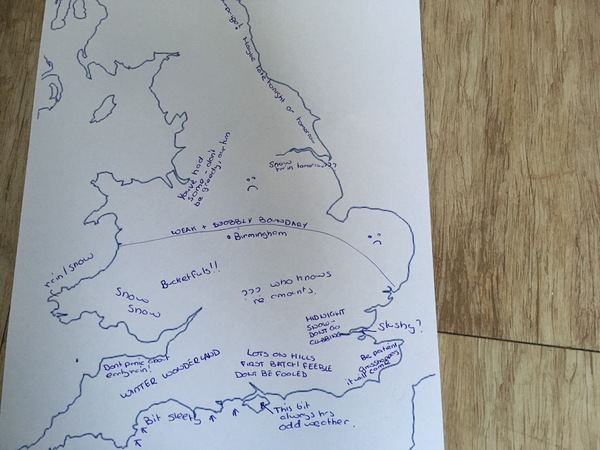 Maybe late tonight or tomorrow
Snow
rain tomorrow???
You've had
some - don't
be greedy, our turn
WEAK + WOBBLY BOUNDARY
Birmingham
rain/snow
Bucketfuls!!
Snow
Snow
??? who knows
re amounts.
MIDNIGHT
SNOW -
DONT GO
CLUBBING
Slushy?
Be patient
grasshoppers
it will come
Dont panic about
early rain!
WINTER WONDERLAND
LOTS ON HILLS
FIRST BATCH FEEBLE
DONT BE FOOLED
Bit sleety
This bit
always has
odd weather.